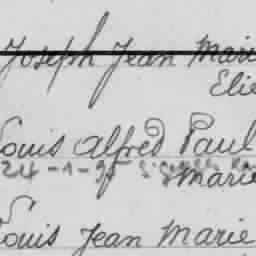 Joseph Jean Marie
Elie
Louis Alfred Paul
24-1-95
Marie
Louis Jean Marie